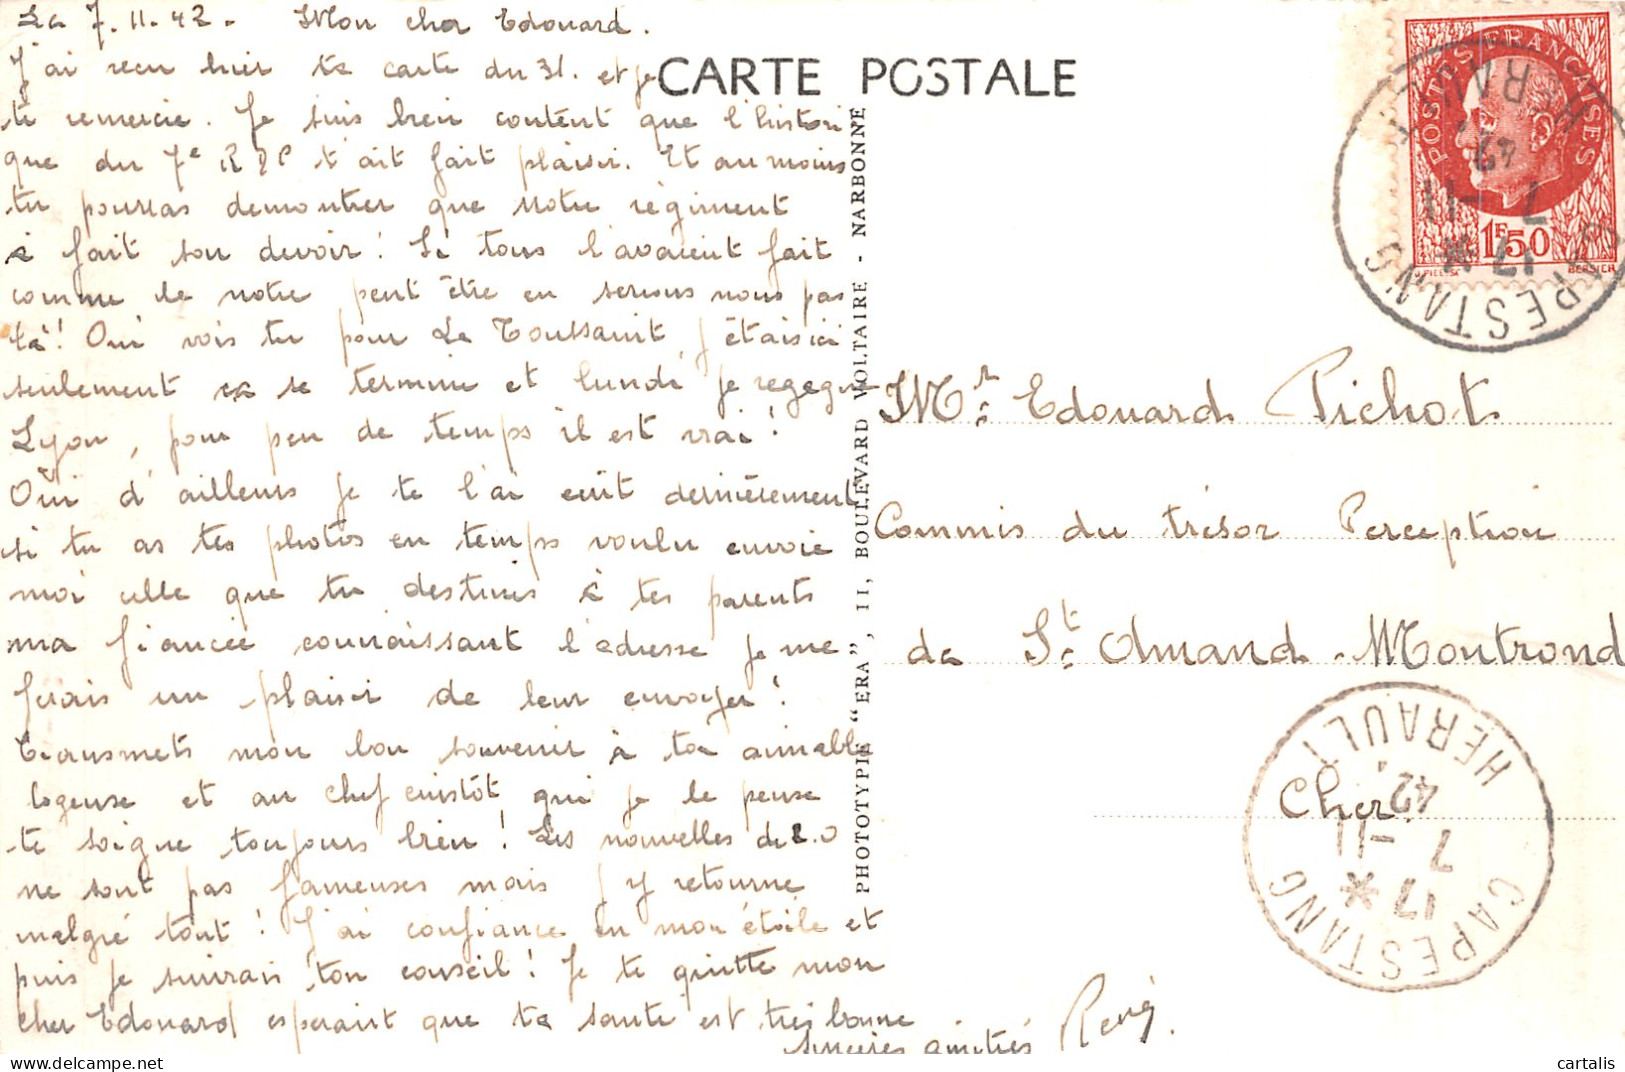 Le 7.11.42. Mon cher Edouard.
J'ai recu hier ta carte du 31. et je
te remercie. Je suis bien content que l'histori
que du 7e t'ait fait plaisir. Et au moins
tu pourras demontrer que notre régiment
a fait son devoir! Si tous l'avaient fait
comme le notre peut être en serions nous pas
là! Oui vois tu pour La Toussaint j'étais ici
seulement ca se termine et lundi je regagne
Lyon, pour peu de temps il est vrai!
Oui d'ailleurs je te l'ai écrit dernièrement
si tu as tes photos en temps voulu envoie
moi celle que tu destines à tes parents
ma fiancée connaissant l'adresse je me
ferais un plaisir de leur envoyer!
Transmets mon bon souvenir à ta aimable
logeuse et au chef cuistôt qui je le pense
te soigne toujours bien! Les nouvelles de
ne sont pas fameuses mais j'y retourne
malgré tout! J'ai confiance en mon étoile et
puis je suivrais ton conseil! Je te quitte mon
cher Edouard esperant que ta santé est très bonne
sincères amitiés René.
CARTE POSTALE
PHOTOTYPIE "ERA", 11, BOULEVARD VOLTAIRE - NARBONNE
POSTES FRANÇAISES
1F50
BERSIER
CAPESTANG
HERAULT
17 *
7-11
42
Mr: Edouard Pichot
Commis du trésor Perception
de St: Amand-Montrond
Cher.
CAPESTANG
HERAULT
17 *
7-11
42
cartalis